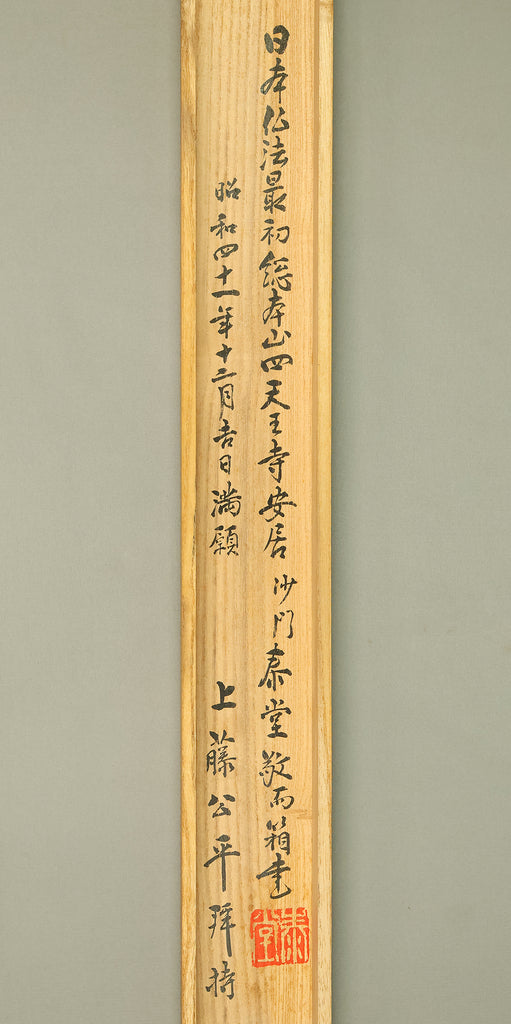 日本仏法最初総本山四天王寺安居 沙門泰堂敬而箱書
昭和四十一年十二月吉日満願 上藤公平拜持
泰堂